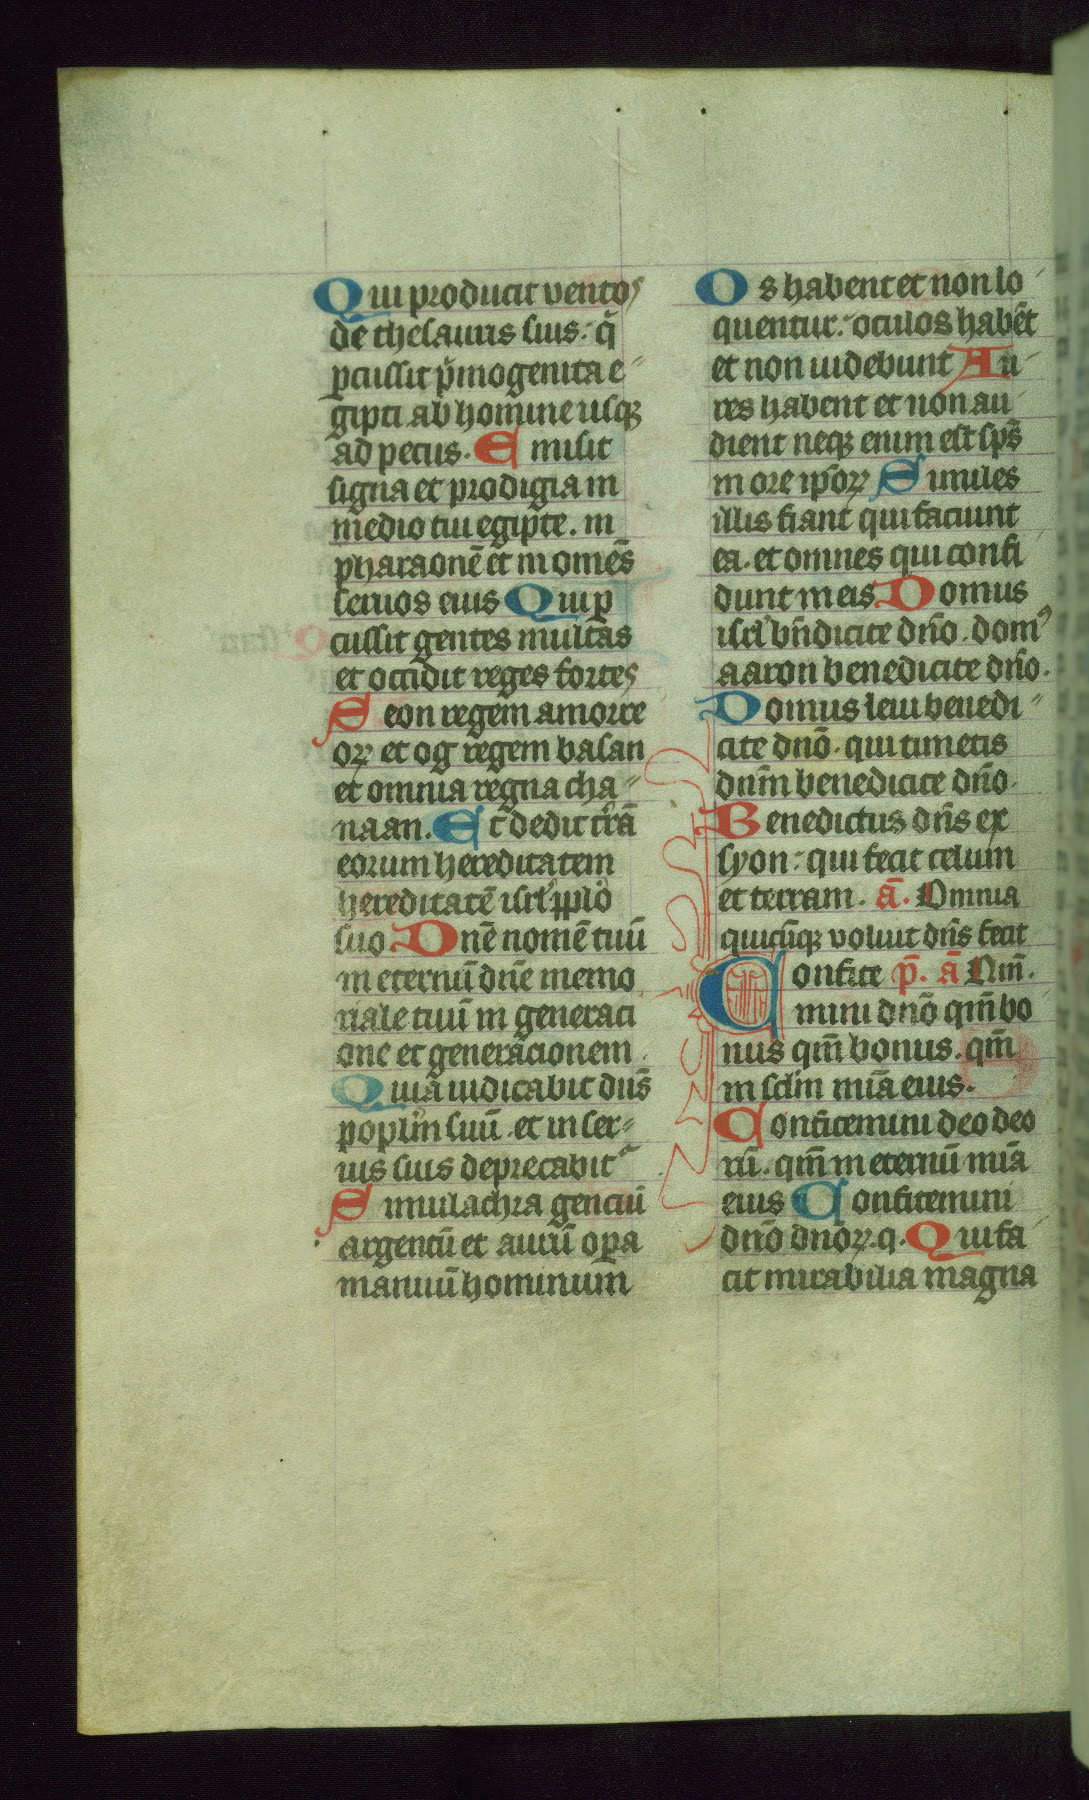 Qui producit ventos
de thesauris suis: q̄
ꝑcussit pͥmogenita e-
gipti ab homine usqꝫ
ad pecus. Emisit
signa et prodigia in
medio tui egipte. in
pharaonē et in omēs
seruos eius Qui ꝑ
cussit gentes multas
et occidit reges fortes
Seon regem amorre
oꝝ et og regem basan
et omnia regna cha-
naan. Et dedit tr̄ā
eorum hereditatem
hereditatē isrl' ppl̄o
suo Dn̄e nomē tuū
in eternū dn̄e memo
riale tuū in generaci
one et generacionem.
Quia iudicabit dn̄s
popl'm suū et in ser-
uis suis deprecabit᷑
Simulachra genciū
argentū et aurū oꝑa
manuū hominum
Os habent et non lo-
quentur: oculos habēt
et non uidebunt Au-
res habent et non au-
dient neqꝫ enim est sp̄s
in ore ip̄oꝝ Similes
illis fiant qui faciunt
ea. et omnes qui confi
dunt in eis Domus
isrl' bn̄dicite dn̄o. domꝰ
aaron benedicite dn̄o.
Domus leui benedi-
cite dn̄o. qui timetis
dn̄m benedicite dn̄o.
Benedictus dn̄s ex
syon: qui fecit celum
et terram. ā. Omnia
quicūqꝫ voluit dn̄s fecit
Confite p̄. ā
mini dn̄o qm̄ bo
nus qm̄ bonus. qm̄
in sclm̄ mīa eius.
Confitemini deo deo
rū. qm̄ in eternū mīa
eius Confitemini
dn̄o dn̄oꝝ. q. Qui fa-
cit mirabilia magna